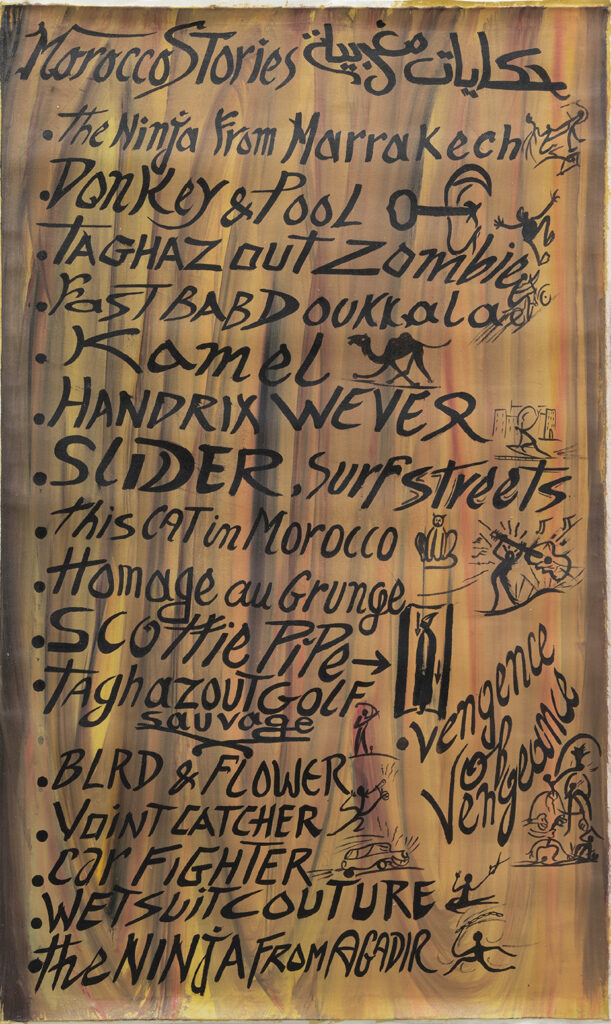 Morocco Stories حكايات مغربية
• the Ninja From Marrakech
• Donkey & Pool
• TAGHAZout Zombie
• Fast BAB Doukkala
• Kamel
• HANDRIX WEVER
• SLIDER, Surf streets
• this CAT in Morocco
• Homage au Grunge
• SCOttie PiPe →
• TaghazoutGOLF
sauvage
• Vengence of Vengeance
• BLRD & FLOWER
• VoiNT CATCHER
• Car FIGHTER
• WETSuiTCOUTURE
• the NINjA FROM AGADIR